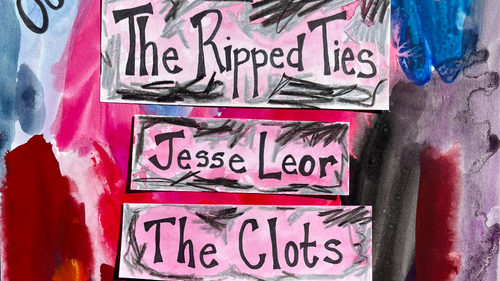 The Ripped Ties
Jesse Leor
The Clots